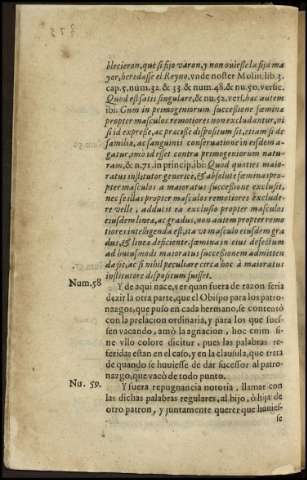 blecieran, que si fijo varon, y non ouiesse la fija ma
yor, heredasse el Reyno, vnde noster Molin. lib. 3.
cap. 5. num. 32. & 33. & num. 48. & nu. 50. versic.
Quod est satis singulare, & nu. 52. vers. hac autem
ibi: Cum in primogeniorum successione fœmina
propter masculos remotiores non excludantur, ni
si id expresse, ac præcisse dispositum sit, etiam si de
familiæ, ac sanguinis conseruatione in esdem a-
gatur, imo id esset contra primogeniorum natu-
ram, & n. 71. in princip. ibi: Quod quoties maio-
ratus institutor generice, & absolute fœminas pro-
pter masculos a maioratus successione exclusit,
nec se illas propter masculos remotiores exclude-
re velle, adducit ea exclusio propter masculos
eiusdem lineæ, ac gradus, non autem propter remo-
tiores intelligenda est, ita vt masculo eiusdem gra
dus, & lineæ deficiente, fœmina in eius defectum
ad huiusmodi maioratus successionem admitten-
da sit, ac si nihil peculiare cerca hoc à maioratus
institutore dispositum fuisset.
Num. 58 Y de aqui nace, ver quan fuera de razon seria
dezir la otra parte, que el Obispo para los patro-
nazgos, que puso en cada hermano, se contentó
con la prelacion ordinaria, y para los que fues-
sen vacando, amò la agnacion, hoc enim si-
ne vllo colore dicitur, pues las palabras re-
feridas estan en el caso, y en la clausula, que trata
de quando se huuiesse de dar sucessor al patro-
nazgo, que vacò de todo punto.
Nu. 59. Y fuera repugnancia notoria, llamar con
las dichas palabras regulares, al hijo, ò hija de
otro patron, y juntamente querer que huuies-
se